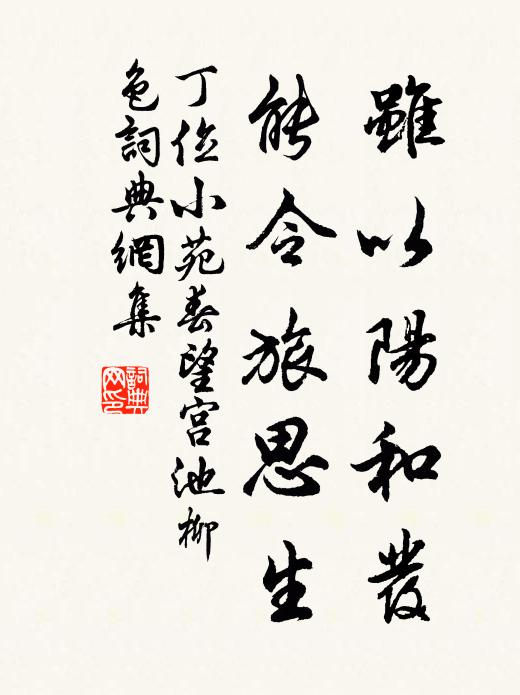 雖以陽和發
能令旅思生
丁位小苑春望宮池柳
色詞典網集
詞典
网印